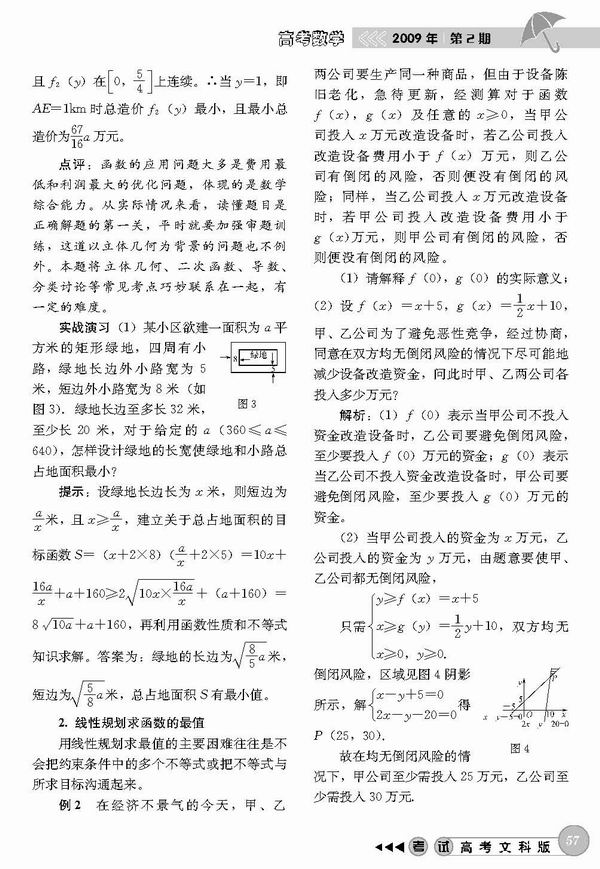 高考数学 <<< 2009年 第2期
且 f₂（y）在[0，5/4]上连续。∴当 y＝1，即
AE＝1km 时总造价 f₂（y）最小，且最小总
造价为67/16 a 万元。
点评：函数的应用问题大多是费用最
低和利润最大的优化问题，体现的是数学
综合能力。从实际情况来看，读懂题目是
正确解题的第一关，平时就要加强审题训
练，这道以立体几何为背景的问题也不例
外。本题将立体几何、二次函数、导数、
分类讨论等常见考点巧妙联系在一起，有
一定的难度。
实战演习（1）某小区欲建一面积为 a 平
方米的矩形绿地，四周有小
路，绿地长边外小路宽为 5
米，短边外小路宽为 8 米（如
图 3）. 绿地长边至多长 32 米，
至少长 20 米，对于给定的 a（360≤a≤
640），怎样设计绿地的长宽使绿地和小路总
占地面积最小？
8 绿地
5
图 3
提示：设绿地长边长为 x 米，则短边为
a/x 米，且 x≥a/x，建立关于总占地面积的目
标函数 S＝（x＋2×8）（a/x＋2×5）＝10x＋
16a/x＋a＋160≥2√(10x×16a/x)＋（a＋160）＝
8√(10a)＋a＋160，再利用函数性质和不等式
知识求解。答案为：绿地的长边为√(8/5 a)米，
短边为√(5/8 a)米，总占地面积 S 有最小值。
2. 线性规划求函数的最值
用线性规划求最值的主要困难往往是不
会把约束条件中的多个不等式或把不等式与
所求目标沟通起来。
例 2 在经济不景气的今天，甲、乙
两公司要生产同一种商品，但由于设备陈
旧老化，急待更新，经测算对于函数
f（x），g（x）及任意的 x≥0，当甲公
司投入 x 万元改造设备时，若乙公司投入
改造设备费用小于 f（x）万元，则乙公
司有倒闭的风险，否则便没有倒闭的风
险；同样，当乙公司投入 x 万元改造设备
时，若甲公司投入改造设备费用小于
g（x)万元，则甲公司有倒闭的风险，否
则便没有倒闭的风险。
（1）请解释 f（0），g（0）的实际意义；
（2）设 f（x）＝x＋5，g（x）＝1/2 x＋10，
甲、乙公司为了避免恶性竞争，经过协商，
同意在双方均无倒闭风险的情况下尽可能地
减少设备改造资金，问此时甲、乙两公司各
投入多少万元？
解析：（1）f（0）表示当甲公司不投入
资金改造设备时，乙公司要避免倒闭风险，
至少要投入 f（0）万元的资金；g（0）表示
当乙公司不投入资金改造设备时，甲公司要
避免倒闭风险，至少要投入 g（0）万元的
资金。
（2）当甲公司投入的资金为 x 万元，乙
公司投入的资金为 y 万元，由题意要使甲、
乙公司都无倒闭风险，
y≥f（x）＝x＋5
只需{x≥g（y）＝1/2 y＋10，双方均无
x≥0，y≥0.
倒闭风险，区域见图 4 阴影
所示，解{x－y＋5＝0
2x－y－20＝0 得
P（25，30）.
y
P
-5 O 10 x
x-y-5=0
2x y 20=0
图 4
故在均无倒闭风险的情
况下，甲公司至少需投入 25 万元，乙公司至
少需投入 30 万元.
◀◀◀ 考试 高考文科版 57